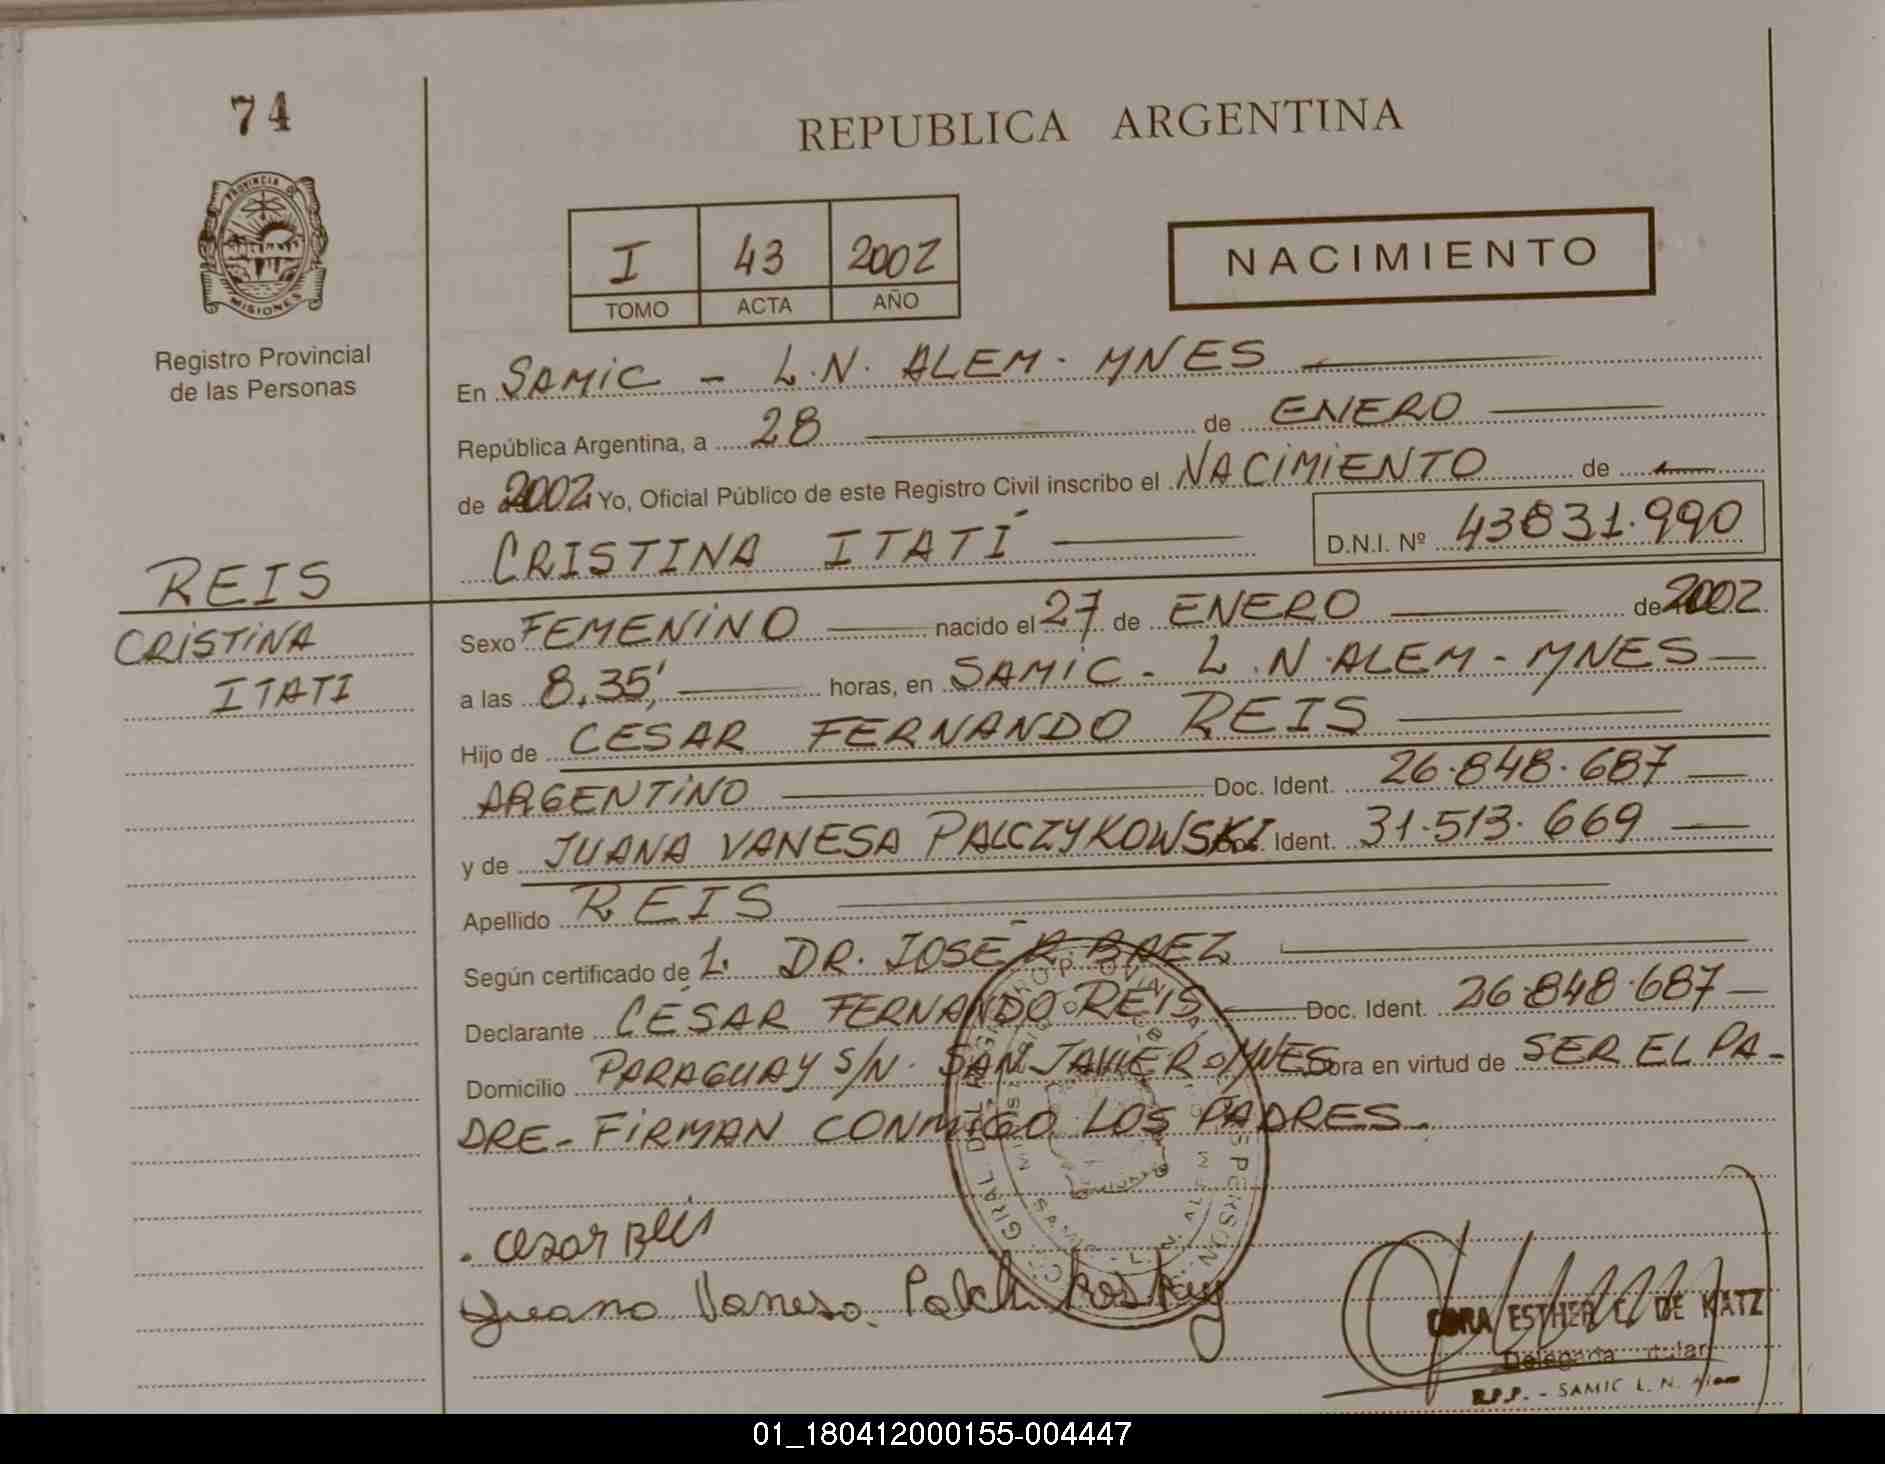 74
PROVINCIA DE
MISIONES
Registro Provincial
de las Personas
REIS
CRISTINA
ITATI
REPUBLICA ARGENTINA
I 43 2002
TOMO ACTA AÑO
NACIMIENTO
En SAMIC - L.N. ALEM - MNES
República Argentina, a 28 de ENERO
de 2002 Yo, Oficial Público de este Registro Civil inscribo el NACIMIENTO de
CRISTINA ITATÍ D.N.I. Nº 43831.990
Sexo FEMENINO nacido el 27 de ENERO de 2002
a las 8,35' horas, en SAMIC - L.N. ALEM - MNES
Hijo de CESAR FERNANDO REIS
ARGENTINO Doc. Ident. 26.848.687
y de JUANA VANESA PALCZYKOWSKI Doc. Ident. 31.513.669
Apellido REIS
Según certificado de 1. DR. JOSÉ R BAEZ
Declarante CÉSAR FERNANDO REIS Doc. Ident. 26.848.687
Domicilio PARAGUAY S/N. SAN JAVIER MNES Obra en virtud de SER EL PA-
DRE - FIRMAN CONMIGO LOS PADRES.
Cesar Reis
Juana Vanesa
CORA ESTHER C. DE KATZ
Delegada titular
R.P.P. - SAMIC L. N. Alem
01_180412000155-004447